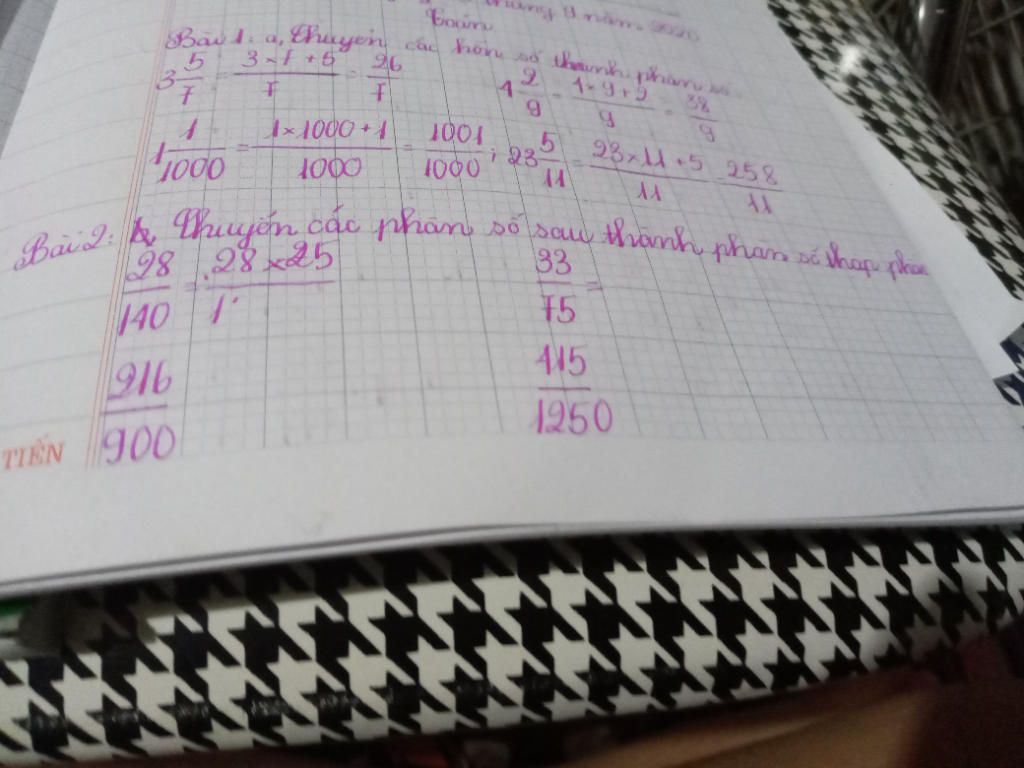 tháng 9 năm 2020
Toán
Bài 1: a, Chuyển các hỗn số thành phân số
3 5/7 = 3 × 7 + 5/7 = 26/7 4 2/9 = 4 × 9 + 2/9 = 38/9
1 1/1000 = 1 × 1000 + 1/1000 = 1001/1000 ; 23 5/11 = 23 × 11 + 5/11 258/11
Bài 2: Chuyển các phân số sau thành phân số thập phân
28/140 = 28 × 25/1 33/75 =
216/900 115/1250
TIẾN